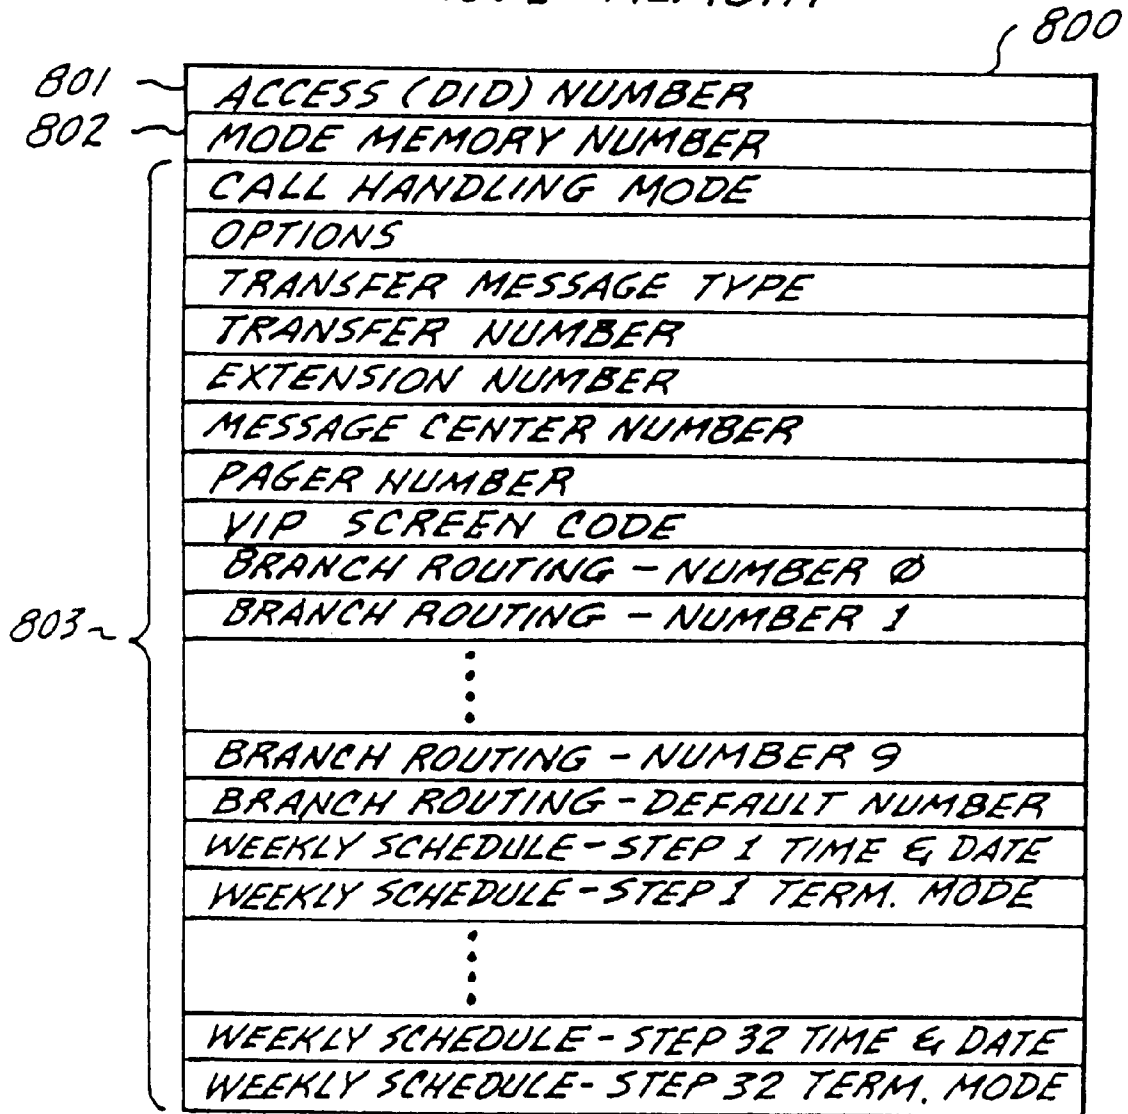 MEMORY
800
801 ACCESS (DID) NUMBER
802 MODE MEMORY NUMBER
CALL HANDLING MODE
OPTIONS
TRANSFER MESSAGE TYPE
TRANSFER NUMBER
EXTENSION NUMBER
MESSAGE CENTER NUMBER
PAGER NUMBER
VIP SCREEN CODE
BRANCH ROUTING - NUMBER Ø
803 BRANCH ROUTING - NUMBER 1
BRANCH ROUTING - NUMBER 9
BRANCH ROUTING - DEFAULT NUMBER
WEEKLY SCHEDULE - STEP 1 TIME & DATE
WEEKLY SCHEDULE - STEP 1 TERM. MODE
WEEKLY SCHEDULE - STEP 32 TIME & DATE
WEEKLY SCHEDULE - STEP 32 TERM. MODE